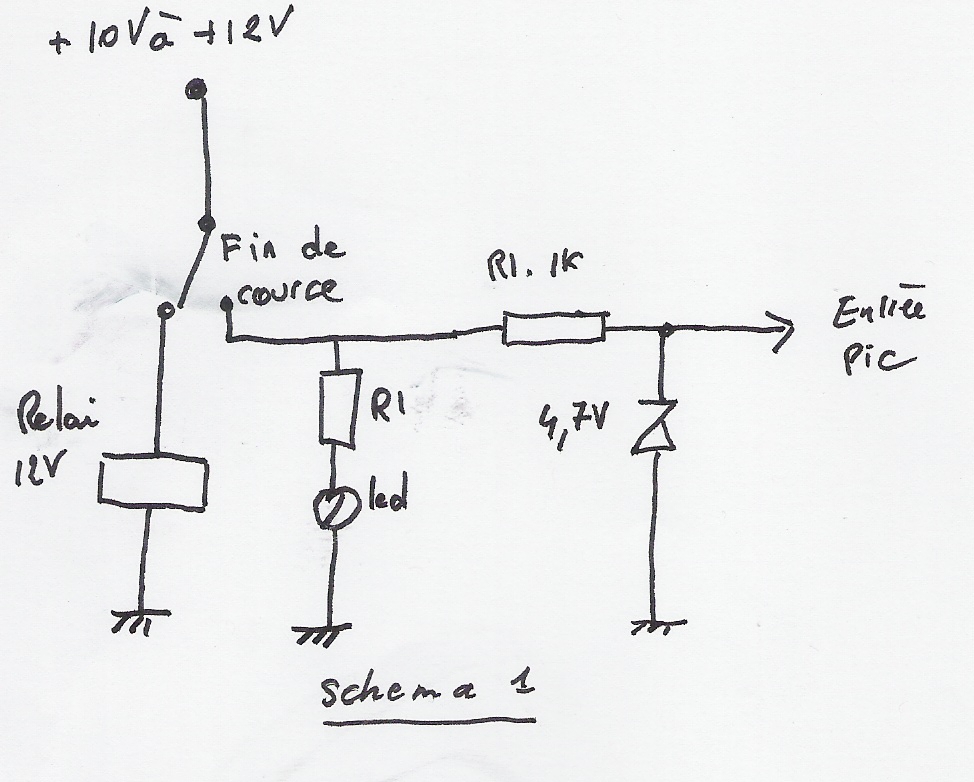 + 10V à +12V
Fin de
cource
R1. 1K
Entrée
Pic
Relai
12V
R1
4,7V
led
Schema 1